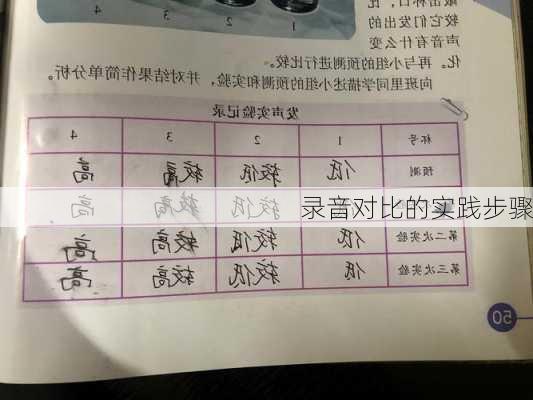 4 3 2 1
敲击杯口,比
较它们发出的
声音有什么变
化。再与小组的预测进行比较。
向班里同学描述小组的预测和实验,并对结果作简单分析。
发声实验记录
杯号 1 2 3 4
预测 低 较低 较高 高
低 较低 较高 高
录音对比的实践步骤
第二次实验 低 较低 较高 高
第三次实验 低 较低 较高 高
50